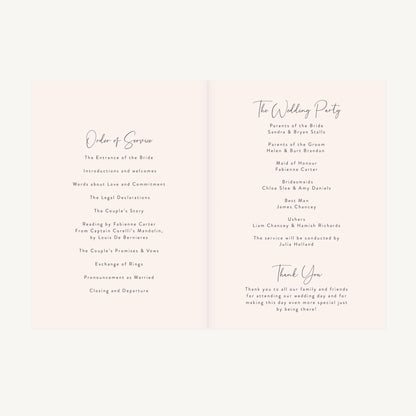 Order of Service
The Entrance of the Bride
Introductions and welcomes
Words about Love and Commitment
The Legal Declarations
The Couple's Story
Reading by Fabienne Carter
From Captain Corelli's Mandolin,
by Louis De Bernieres
The Couple's Promises & Vows
Exchange of Rings
Pronouncement as Married
Closing and Departure
The Wedding Party
Parents of the Bride
Sandra & Bryan Stalls
Parents of the Groom
Helen & Burt Brandon
Maid of Honour
Fabienne Carter
Bridesmaids
Chloe Sloe & Amy Daniels
Best Man
James Chancey
Ushers
Liam Chancey & Hamish Richards
The service will be conducted by
Julia Holland
Thank You
Thank you to all our family and friends
for attending our wedding day and for
making this day even more special just
by being there!